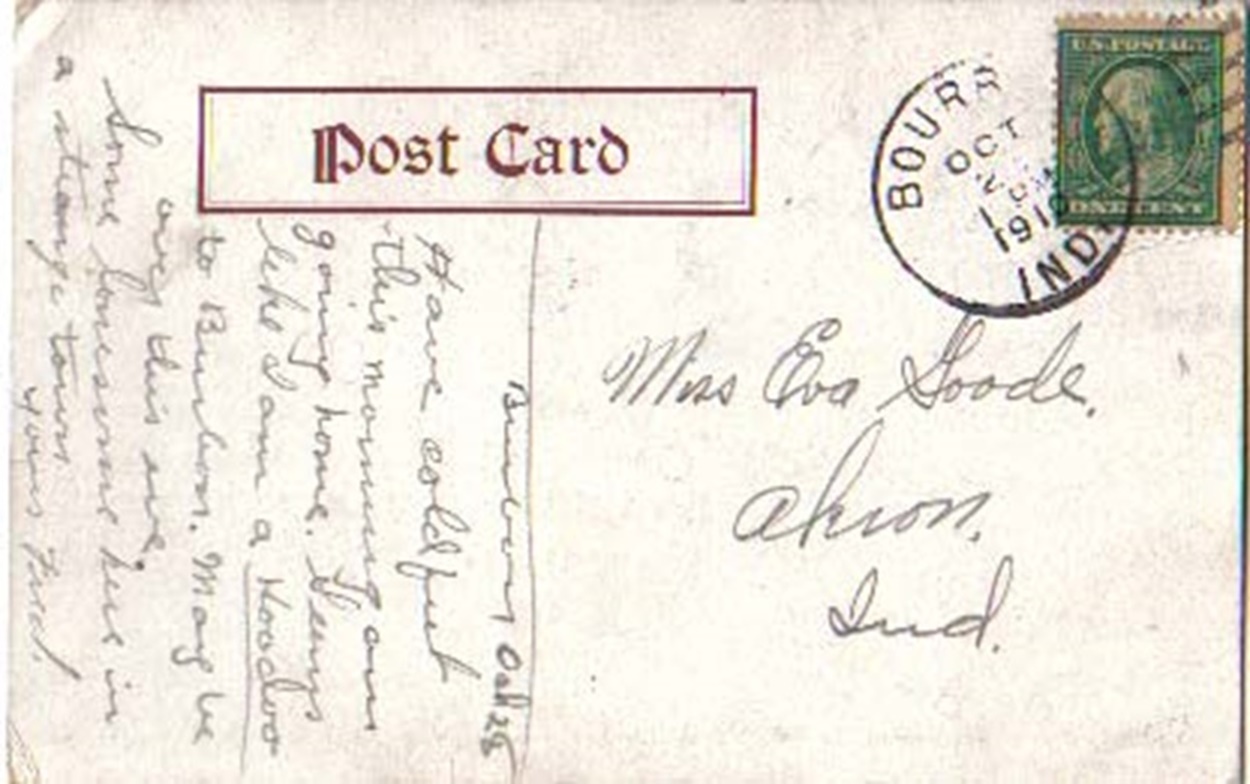 Post Card
BOURB
OCT
1910
IND.
U.S. POSTAGE
ONE CENT
Miss Eva Goode.
Akron,
Ind.
Oct 28
Have cold feet
this morning am
going home. Seems
like I am a Hoodoo
to Burbon. May be
over this eve.
Some lonesome here in
a strange town.
yours Fred.